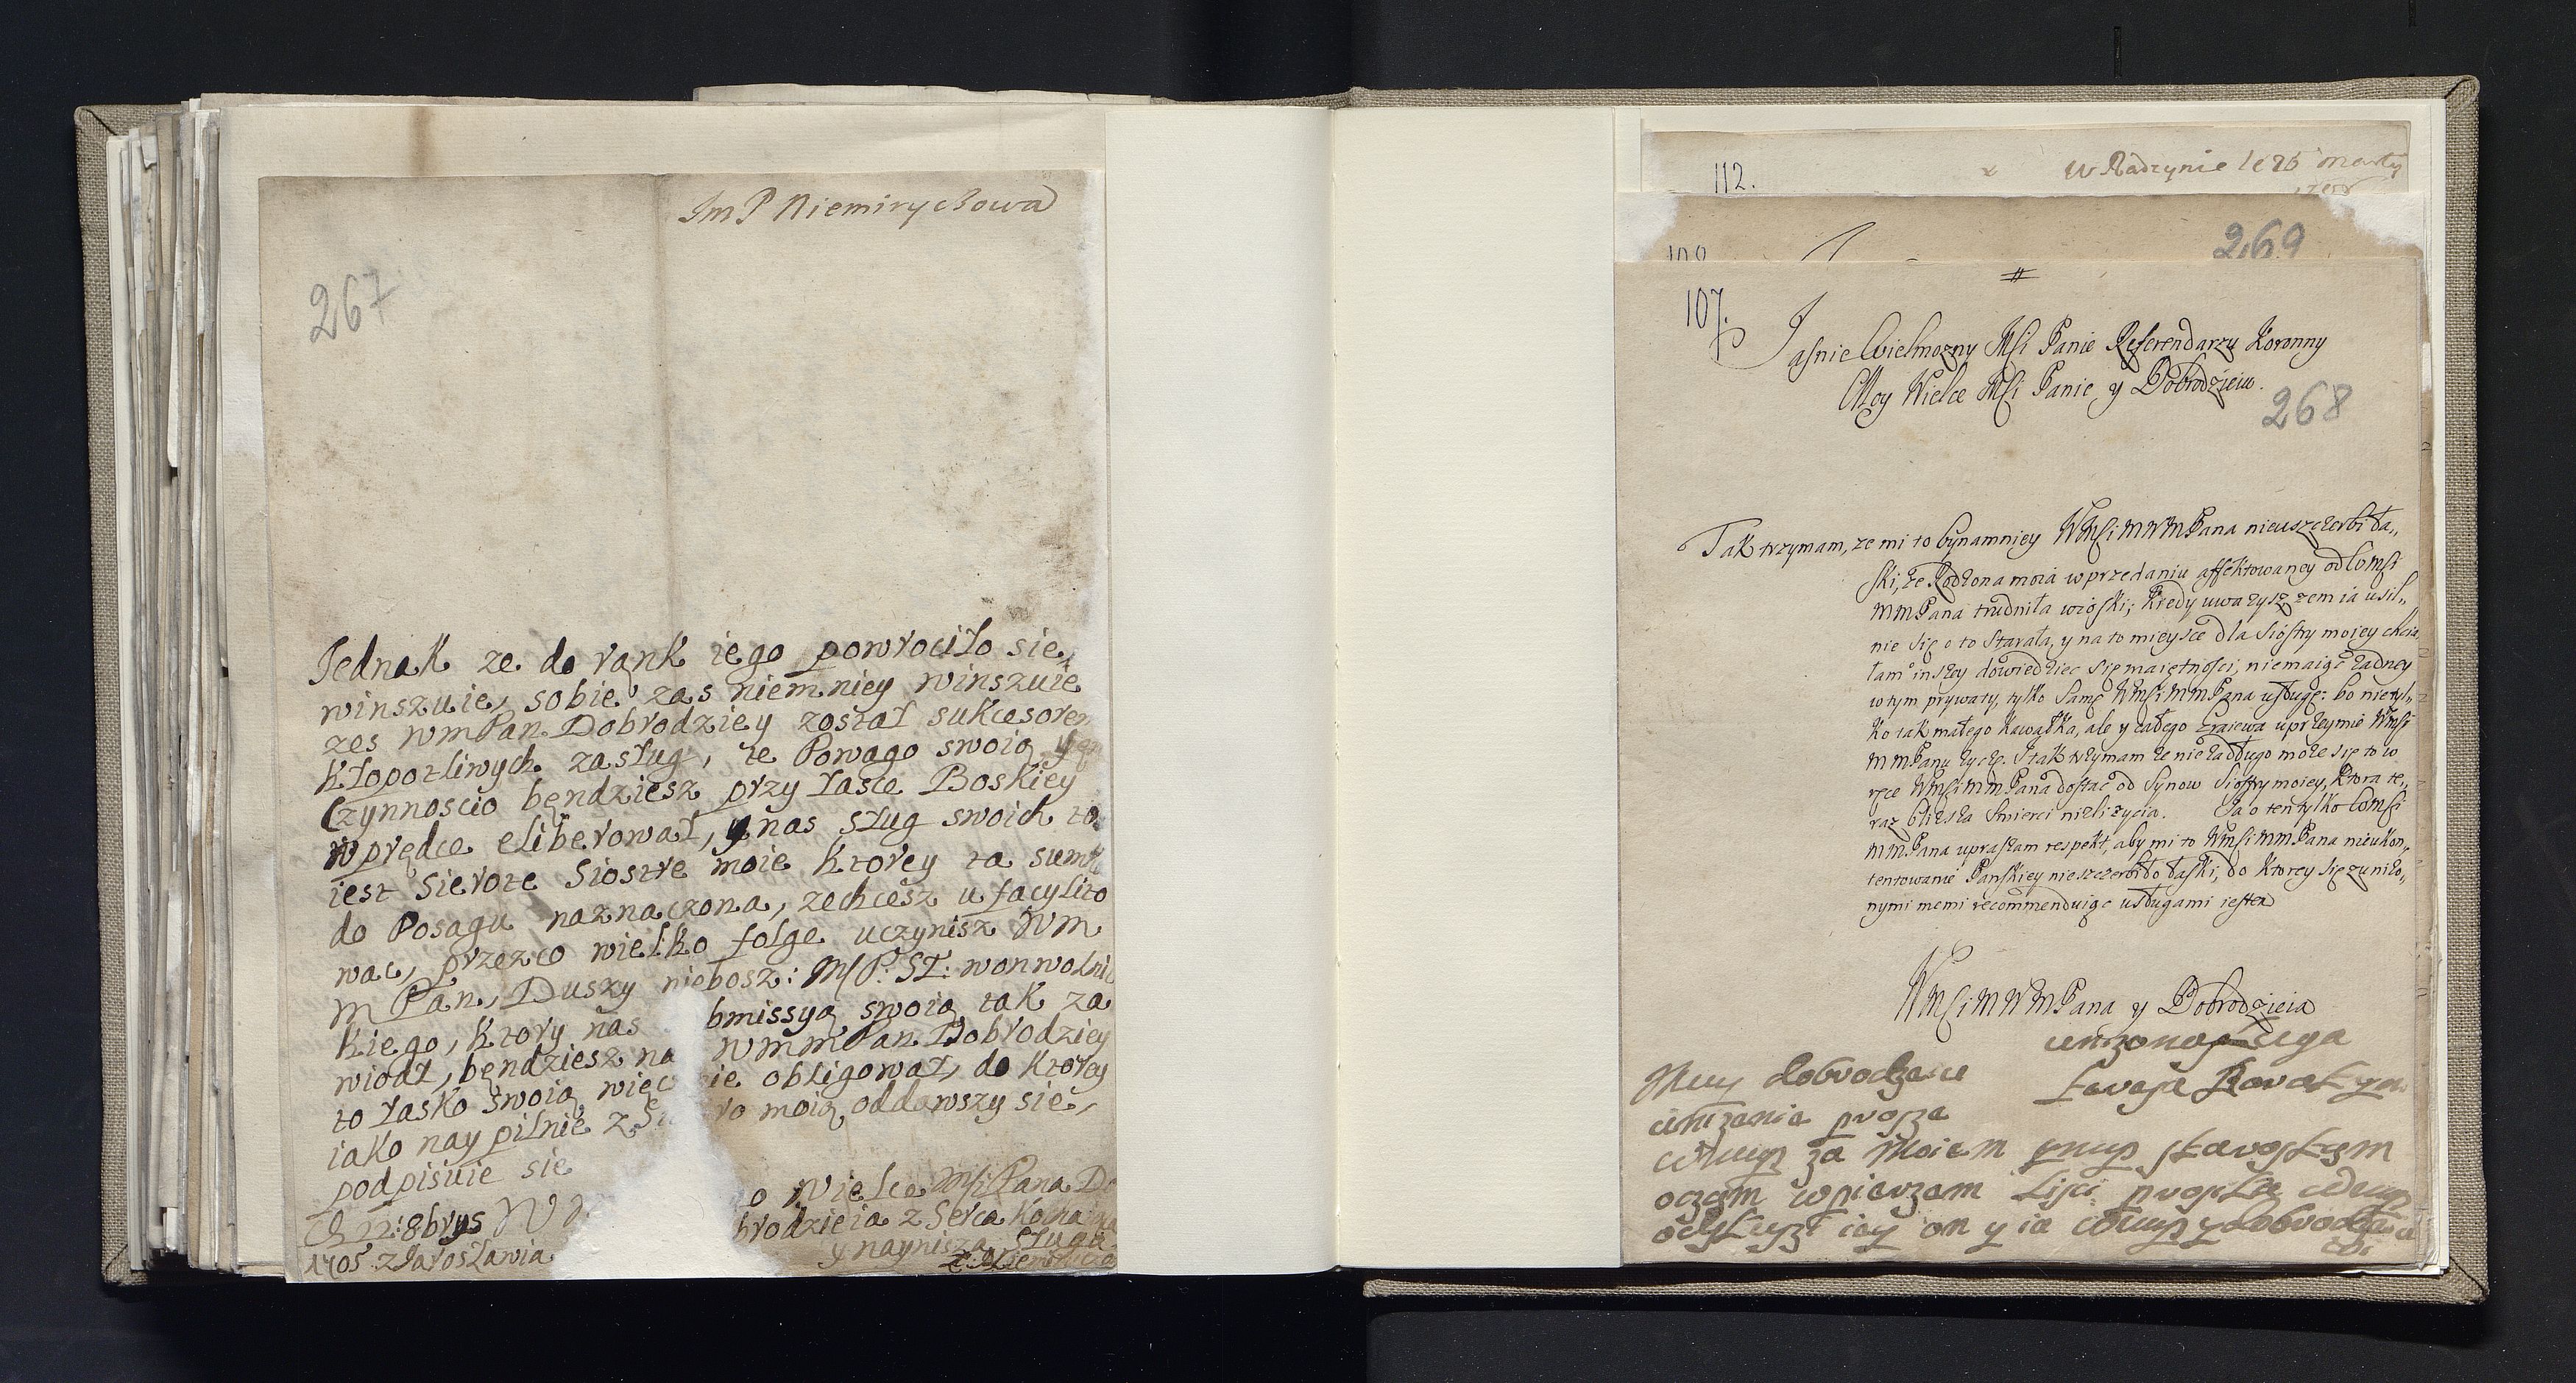 JmP Niemirychowa
267
Jednak ze do rank iego powrociło sie,
winszuie, sobie zas niemniey winszuie
zes WmPan Dobrodziey został sukcesorem
kłopotliwych zasług, ze Powago swoią y
Czynnoscio bęndziesz przy łasce Boskiey
wprędce eliberował, y nas sług swoich to
iest Sierote Siostre moie ktorey ta summa
do Posagu naznaczona, zechcesz ufacylito
wac, przezco wielko folge uczynisz Wm
m Pan, Duszy niebosz: MP: St: wonwolni
kiego, ktory nas bmissyą swoią tak za
wiodł, bęndziesz na WmmPan Dobrodziey
to łasko swoią więc ie obligował, do ktorey
iako naypilnie z ro moią oddawszy sie,
podpisuie sie
o Wielce MsiPana Do
d 22: 8brys W
brodzieia z Serca Kocha
1705 z Jarosławia
y naynisza Sługa
112.
w Radzynie le 26 marty
269
107.
Jasnie Wielmozny Msi Panie Referendarzu Koronny
Moy Wielce Msi Panie y Dobrodzieiu.
268
Tak trzymam, ze mi to bynamniey WMsiMWMPana nieuszczerbi ła„
ski, że Rodzona moia wprzedaniu affektowaney od WMsi
MMPana trudniła wioski; kiedy uwazysz zem ia usil„
nie się o to starała, y na to mieysce dla Siostry moiey chcia
łam inszey dowiedziec się maiętnosci, niemaiąc żadney
wtym prywaty, tylko samą WMsiMMPana usługę: bo nietyl„
ko tak małego kawałka, ale y całego Graiewa uprzeymie WMsi
MMPanu życzę. I tak trzymam że nie zadługo może się to w
ręce WMsiMMPana dostać od Synow Siostry moiey, ktora te„
raz bliższa Smierci niżli życia. Ja o ten tylko WMsi
MMPana upraszam respekt, aby mi to WMsiMMPana nieukon„
tentowanie Panskiey nieszczerbiło łaski, do ktorey się zuniżo„
nymi memi recommenduiąc usługami iestem
WMsiMWMPana y Dobrodzieia
unizona sługa
Muy dobrodzeiu
unizenie prosze
za moiem
oczem
on y ia